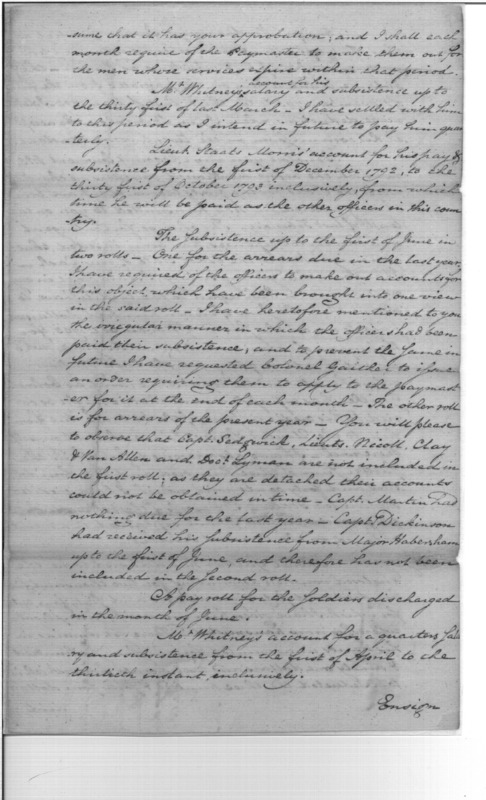 sume that it has your approbation; and I shall each
month require of the Paymaster to make them out for
the men whose services expire within that period.
account for his
Mr Whitneys salary and subsistence up to
the thirty first of last March - I have settled with him
to this period as I intend in future to pay him quar
terly.
Lieut. Staats Morris' account for his pay &
subsistence from the first of December 1792, to the
thirty first of October 1793 inclusively, from which
time he will be paid as the other officers in this coun
try.
The Subsistence up to the first of June in
two rolls - One for the arrears due in the last year,
I have required of the officers to make out accounts for
this object, which have been brought into one view
in the said roll - I have heretofore mentioned to you
the irregular manner in which the officers had been
paid their subsistence, and to prevent the same in
future I have requested Colonel Gaither to issue
an order requiring them to apply to the paymast
er for it at the end of each month - The other roll
is for arrears of the present year - You will please
to observe that Capt. Sedgwick, Lieuts. Nicoll, Clay
& Van Allen and Doct. Lyman are not included in
the first roll; as they are detached their accounts
could not be obtained in time - Capt. Martin had
nothing due for the last year - Capt. Dickinson
had received his subsistence from Major Habersham
up to the first of June, and therefore has not been
included in the second roll.
A pay roll for the Soldiers discharged
in the month of June.
Mr Whitneys account for a quarters Sala
ry and subsistence from the first of April to the
thirtieth instant, inclusively.
Ensign